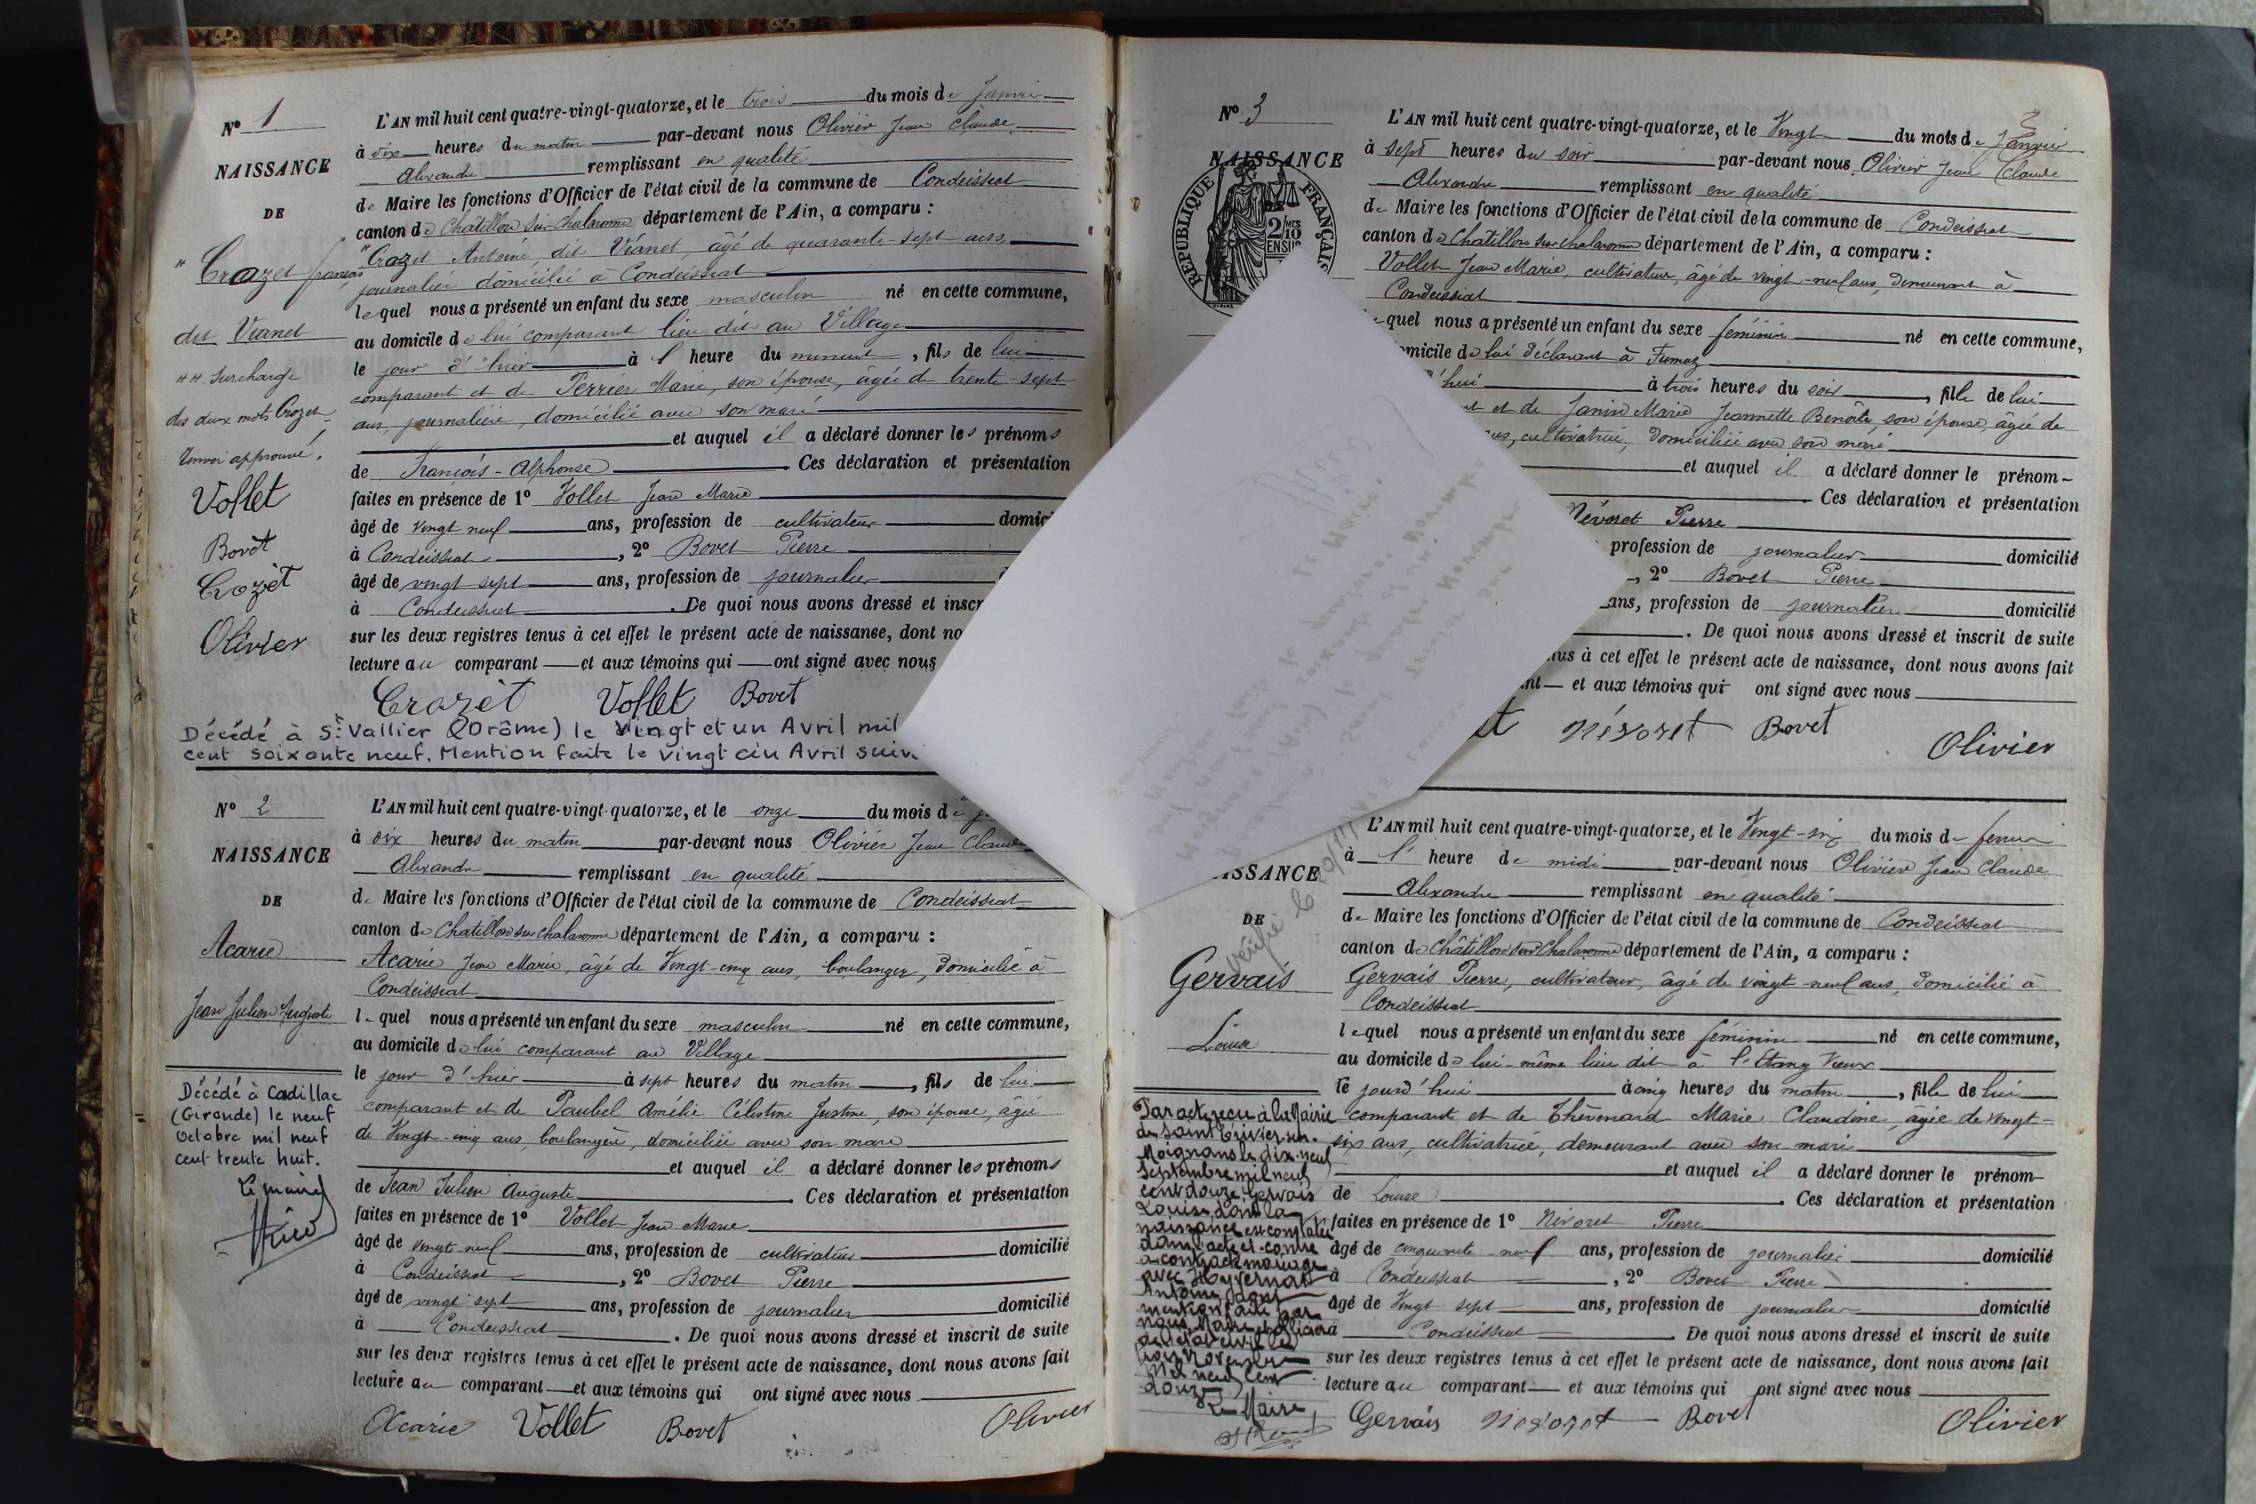 N° 1
NAISSANCE
DE
" Crozet françois
dit Vianet
"" Surcharge
des deux mots Crozet
renvoi approuvé.
Vollet
Bovet
Crozet
Olivier
L'AN mil huit cent quatre-vingt-quatorze, et le trois du mois de Janvier
à dix heures du matin par-devant nous Olivier Jean Claude
Alexandre remplissant en qualité
de Maire les fonctions d'Officier de l'état civil de la commune de Condeissiat
canton de Chatillon sur Chalaronne département de l'Ain, a comparu :
"Crozet Antoine, dit Vianet, âgé de quarante-sept ans,
journalier domicilié à Condeissiat
lequel nous a présenté un enfant du sexe masculin né en cette commune,
au domicile de lui comparant lieu dit au Village
le jour d'hier à l heure du , fils de lui
comparant et de Perrier Marie, son épouse, âgée de trente-sept
ans, journalière, domicilié avec son mari
et auquel il a déclaré donner les prénoms
de François-Alphonse Ces déclaration et présentation
faites en présence de 1° Vollet Jean Marie
âgé de vingt neuf ans, profession de cultivateur
à Condeissiat, 2° Bovet Pierre
âgé de vingt sept ans, profession de journalier
à Condeissiat. De quoi nous avons dressé et
sur les deux registres tenus à cet effet le présent acte de naissance, dont
lecture au comparant et aux témoins qui ont signé avec nous
Crozet Vollet Bovet
Décédé à St Vallier (Drôme) le vingt et un Avril mil
cent soixante neuf. Mention faite le vingt cinq Avril
N° 2
NAISSANCE
DE
Acarie
Jean Julien Auguste
Décédé à Cadillac
(Gironde) le neuf
Octobre mil neuf
cent trente huit.
Le maire
L'AN mil huit cent quatre-vingt-quatorze, et le onze du mois de
à dix heures du matin par-devant nous Olivier Jean Claude
Alexandre remplissant en qualité
de Maire les fonctions d'Officier de l'état civil de la commune de Condeissiat
canton de Chatillon sur Chalaronne département de l'Ain, a comparu :
Acarie Jean Marie, âgé de Vingt-cinq ans, boulanger, domicilié à
Condeissiat
lequel nous a présenté un enfant du sexe masculin né en cette commune,
au domicile de lui comparant au Village
le jour d'hier à sept heures du matin, fils de lui
comparant et de Paubel Amélie Célestine Justine, son épouse, âgée
de Vingt-cinq ans, boulangère, domiciliée avec son mari
et auquel il a déclaré donner les prénoms
de Jean Julien Auguste. Ces déclaration et présentation
faites en présence de 1° Vollet Jean Marie
âgé de vingt neuf ans, profession de cultivateur domicilié
à Condeissiat, 2° Bovet Pierre
âgé de vingt sept ans, profession de journalier domicilié
à Condeissiat. De quoi nous avons dressé et inscrit de suite
sur les deux registres tenus à cet effet le présent acte de naissance, dont nous avons fait
lecture au comparant et aux témoins qui ont signé avec nous
Acarie Vollet Bovet Olivier
N° 3
NAISSANCE
RÉPUBLIQUE FRANÇAIS
2/10 MES
EN SUS
L'AN mil huit cent quatre-vingt-quatorze, et le Vingt du mois de Janvier
à sept heures du soir par-devant nous Olivier Jean Claude
Alexandre remplissant en qualité
de Maire les fonctions d'Officier de l'état civil de la commune de Condeissiat
canton de Chatillon sur Chalaronne département de l'Ain, a comparu :
Vollet Jean Marie, cultivateur, âgé de vingt-neuf ans, demeurant à
Condeissiat
quel nous a présenté un enfant du sexe féminin né en cette commune,
omicile de lui déclarant à Fumoz
d'hui à trois heures du soir, fille de lui
et de Janin Marie Jeannette Benoîte, son épouse, âgée de
ans, cultivatrice, domiciliée avec son mari
et auquel il a déclaré donner le prénom
Ces déclaration et présentation
Névoret Pierre
profession de journalier domicilié
, 2° Bovet Pierre
ans, profession de journalier domicilié
. De quoi nous avons dressé et inscrit de suite
à cet effet le présent acte de naissance, dont nous avons fait
et aux témoins qui ont signé avec nous
Névoret Bovet
Olivier
NAISSANCE
DE
Gervais
Louise
vérifié le
L'AN mil huit cent quatre-vingt-quatorze, et le Vingt-six du mois de février
à l' heure de midi par-devant nous Olivier Jean Claude
Alexandre remplissant en qualité
de Maire les fonctions d'Officier de l'état civil de la commune de Condeissiat
canton de Châtillon sur Chalaronne département de l'Ain, a comparu :
Gervais Pierre, cultivateur, âgé de vingt-neuf ans, domicilié à
Condeissiat
lequel nous a présenté un enfant du sexe féminin né en cette commune,
au domicile de lui-même lieu dit à l'Etang Vieux
le jourd'hui à cinq heures du matin, fille de lui
comparant et de Thévenard Marie Claudine, âgée de vingt-
six ans, cultivatrice, demeurant avec son mari
et auquel il a déclaré donner le prénom
de Louise. Ces déclaration et présentation
faites en présence de 1° Névoret Pierre
âgé de cinquante-neuf ans, profession de journalier domicilié
à Condeissiat, 2° Bovet Pierre
âgé de Vingt sept ans, profession de journalier domicilié
à Condeissiat De quoi nous avons dressé et inscrit de suite
sur les deux registres tenus à cet effet le présent acte de naissance, dont nous avons fait
lecture au comparant et aux témoins qui ont signé avec nous
Gervais Névoret Bovet Olivier
Par acte reçu à la Mairie
de Saint Trivier sur
Moignans le dix-neuf
Septembre mil neuf
cent douze, Gervais
Louise dont la
naissance est constatée
dans l'acte ci-contre
a contracté mariage
avec Hyvernat
Antoine, dont
mention faite par
nous, Maire et officier
de l'état civil le
trois Novembre
mil neuf cent
douze
Le Maire